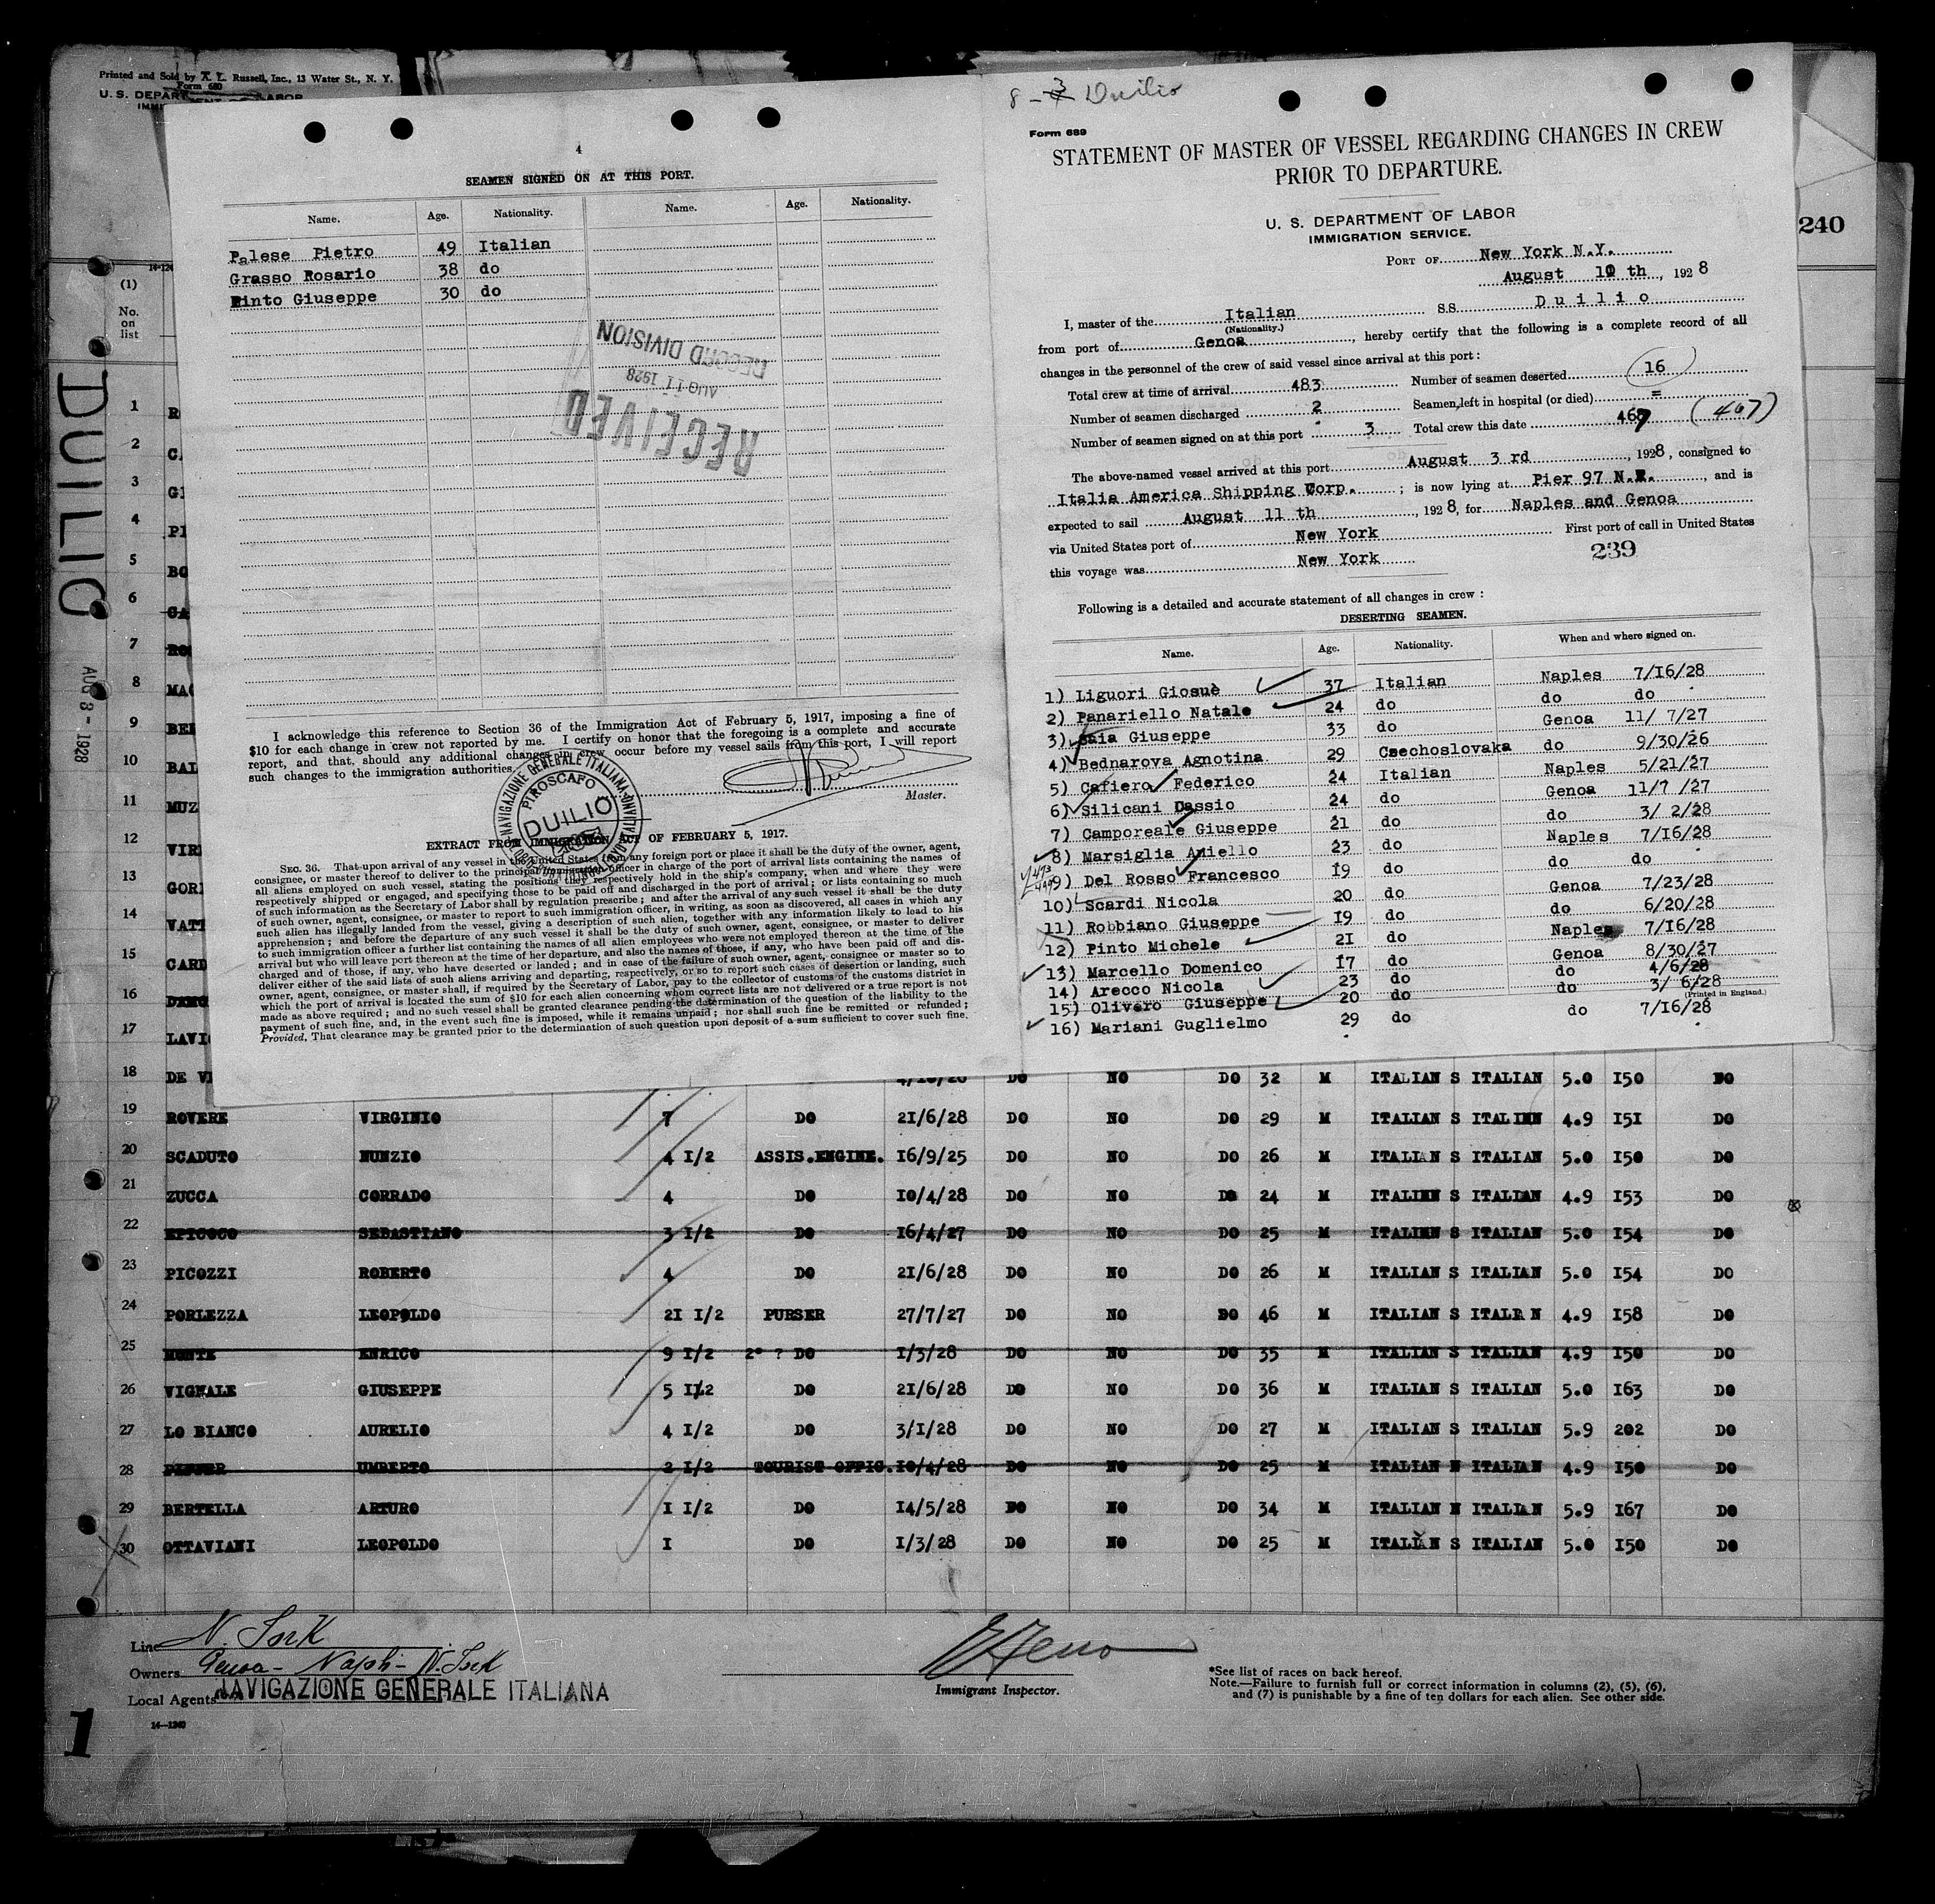 Printed and Sold by A. L. Russell, Inc., 13 Water St., N. Y.
Form 680
U. S. DEPARTMENT OF LABOR
(1)
No.
on
list
DUILIO
AUG 8 - 1928
240
1 R
2 C
3 GI
4 PI
5 BO
6 CA
7 RO
8 MAC
9 BEI
10 BAL
11 MUZ
12 VIR
13 GORI
14 VATI
15 CARD
16
17 LAVI
4
SEAMEN SIGNED ON AT THIS PORT.
Name. Age. Nationality. Name. Age. Nationality.
Palese Pietro 49 Italian
Grasso Rosario 38 do
Pinto Giuseppe 30 do
RECORD DIVISION
AUG 11 1928
RECEIVED
I acknowledge this reference to Section 36 of the Immigration Act of February 5, 1917, imposing a fine of
$10 for each change in crew not reported by me. I certify on honor that the foregoing is a complete and accurate
report, and that, should any additional changes in crew occur before my vessel sails from this port, I will report
such changes to the immigration authorities.
Master.
NAVIGAZIONE GENERALE ITALIANA
PIROSCAFO
DUILIO
EXTRACT FROM IMMIGRATION ACT OF FEBRUARY 5, 1917.
SEC. 36. That upon arrival of any vessel in the United States from any foreign port or place it shall be the duty of the owner, agent,
consignee, or master thereof to deliver to the principal immigration officer in charge of the port of arrival lists containing the names of
all aliens employed on such vessel, stating the positions they respectively hold in the ship's company, when and where they were
respectively shipped or engaged, and specifying those to be paid off and discharged in the port of arrival; or lists containing so much
of such information as the Secretary of Labor shall by regulation prescribe; and after the arrival of any such vessel it shall be the duty
of such owner, agent, consignee, or master to report to such immigration officer, in writing, as soon as discovered, all cases in which any
such alien has illegally landed from the vessel, giving a description of such alien, together with any information likely to lead to his
apprehension; and before the departure of any such vessel it shall be the duty of such owner, agent, consignee, or master to deliver
to such immigration officer a further list containing the names of all alien employees who were not employed thereon at the time of the
arrival but who will leave port thereon at the time of her departure, and also the names of those, if any, who have been paid off and dis-
charged and of those, if any, who have deserted or landed; and in case of the failure of such owner, agent, consignee or master so to
deliver either of the said lists of such aliens arriving and departing, respectively, or so to report such cases of desertion or landing, such
owner, agent, consignee, or master shall, if required by the Secretary of Labor, pay to the collector of customs of the customs district in
which the port of arrival is located the sum of $10 for each alien concerning whom correct lists are not delivered or a true report is not
made as above required; and no such vessel shall be granted clearance pending the determination of the question of the liability to the
payment of such fine, and, in the event such fine is imposed, while it remains unpaid; nor shall such fine be remitted or refunded;
Provided, That clearance may be granted prior to the determination of such question upon deposit of a sum sufficient to cover such fine.
8 - 3 Duilio
Form 689
STATEMENT OF MASTER OF VESSEL REGARDING CHANGES IN CREW
PRIOR TO DEPARTURE.
U. S. DEPARTMENT OF LABOR
IMMIGRATION SERVICE.
PORT OF New York N.Y.
August 10 th, 1928
I, master of the Italian SS Duilio
(Nationality.)
from port of Genoa, hereby certify that the following is a complete record of all
changes in the personnel of the crew of said vessel since arrival at this port:
Total crew at time of arrival 483 Number of seamen deserted 16
Number of seamen discharged 2 Seamen left in hospital (or died) =
Number of seamen signed on at this port 3 Total crew this date 467 (467)
The above-named vessel arrived at this port August 3 rd, 1928, consigned to
Italia America Shipping Corp. ; is now lying at Pier 97 N.R., and is
expected to sail August 11 th, 1928, for Naples and Genoa
via United States port of New York First port of call in United States
this voyage was New York
239
Following is a detailed and accurate statement of all changes in crew:
DESERTING SEAMEN.
Name. Age. Nationality. When and where signed on.
1) Liguori Giosuè 37 Italian Naples 7/16/28
2) Panariello Natale 24 do do do
3) Saia Giuseppe 33 do Genoa 11/ 7/27
4) Bednarova Agnotina 29 Czechoslovaka do 9/30/26
5) Cafiero Federico 24 Italian Naples 5/21/27
6) Silicani Dassio 24 do Genoa 11/7 /27
7) Camporeale Giuseppe 21 do do 3/ 2/28
8) Marsiglia Aniello 23 do Naples 7/16/28
9) Del Rosso Francesco 19 do do do
10) Scardi Nicola 20 do Genoa 7/23/28
11) Robbiano Giuseppe 19 do do 6/20/28
12) Pinto Michele 21 do Naples 7/16/28
13) Marcello Domenico 17 do Genoa 8/30/27
14) Arecco Nicola 23 do do 4/6/28
15) Olivero Giuseppe 20 do do 3/ 6/28
(Printed in England.)
16) Mariani Guglielmo 29 do do 7/16/28
18 DE VI DO NO DO 32 M ITALIAN S ITALIAN 5.0 150 DO
19 ROVERE VIRGINIO 7 DO 21/6/28 DO NO DO 29 M ITALIAN S ITALIAN 4.9 151 DO
20 SCADUTO NUNZIO 4 1/2 ASSIS.ENGINE. 16/9/25 DO NO DO 26 M ITALIAN S ITALIAN 5.0 150 DO
21 ZUCCA CORRADO 4 DO 10/4/28 DO NO DO 24 M ITALIAN S ITALIAN 4.9 153 DO
22 EPICOCO SEBASTIANO 3 1/2 DO 16/4/27 DO NO DO 25 M ITALIAN S ITALIAN 5.0 154 DO
23 PICOZZI ROBERTO 4 DO 21/6/28 DO NO DO 26 M ITALIAN S ITALIAN 5.0 154 DO
24 PORLEZZA LEOPOLDO 21 1/2 PURSER 27/7/27 DO NO DO 46 M ITALIAN S ITALIAN 4.9 158 DO
25 MONTE ENRICO 9 1/2 2° ? DO 1/3/28 DO NO DO 35 M ITALIAN S ITALIAN 4.9 150 DO
26 VIGNALE GIUSEPPE 5 1/2 DO 21/6/28 DO NO DO 36 M ITALIAN S ITALIAN 5.0 163 DO
27 LO BIANCO AURELIO 4 1/2 DO 3/1/28 DO NO DO 27 M ITALIAN S ITALIAN 5.9 202 DO
28 UMBERTO 2 1/2 TOURIST OFFIC. 10/4/28 DO NO DO 25 M ITALIAN N ITALIAN 4.9 150 DO
29 BERTELLA ARTURO 1 1/2 DO 14/5/28 DO NO DO 34 M ITALIAN N ITALIAN 5.9 167 DO
30 OTTAVIANI LEOPOLDO 1 DO 1/3/28 DO NO DO 25 M ITALIAN S ITALIAN 5.0 150 DO
Line N. York
Owners Genoa - Napli - N. York
Local Agents NAVIGAZIONE GENERALE ITALIANA
Immigrant Inspector.
*See list of races on back hereof.
Note.—Failure to furnish full or correct information in columns (2), (5), (6),
and (7) is punishable by a fine of ten dollars for each alien. See other side.
14—1240
1